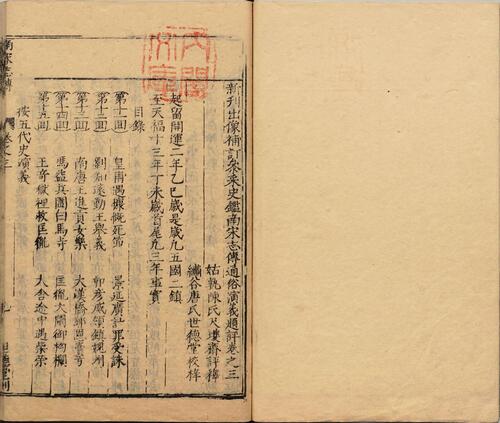 新刊出像補訂叅采史鑑南宋志傳通俗演義題評卷之三
姑孰陳氏尺蠖齋評釋
繡谷唐氏世德堂校梓
起晉開運二年乙巳歲是歲凡五國二鎮
至天福十三年丁未歲首尾凡三年事實
目錄
第十一回 皇甫遇慷慨死節 景延廣計罪受誅
第十二回 劉知遠勸王舉義 郭彥威領鎮視州
第十三回 南唐王進貢女樂 大漢橋鄭恩賣弓
第十四回 馬益兵圍白馬寺 匡胤大鬧御拘欄
第十五回 王奇嶽裡救匡胤 大舍途中遇柴榮
按五代史演義
卷之三
內閣文庫